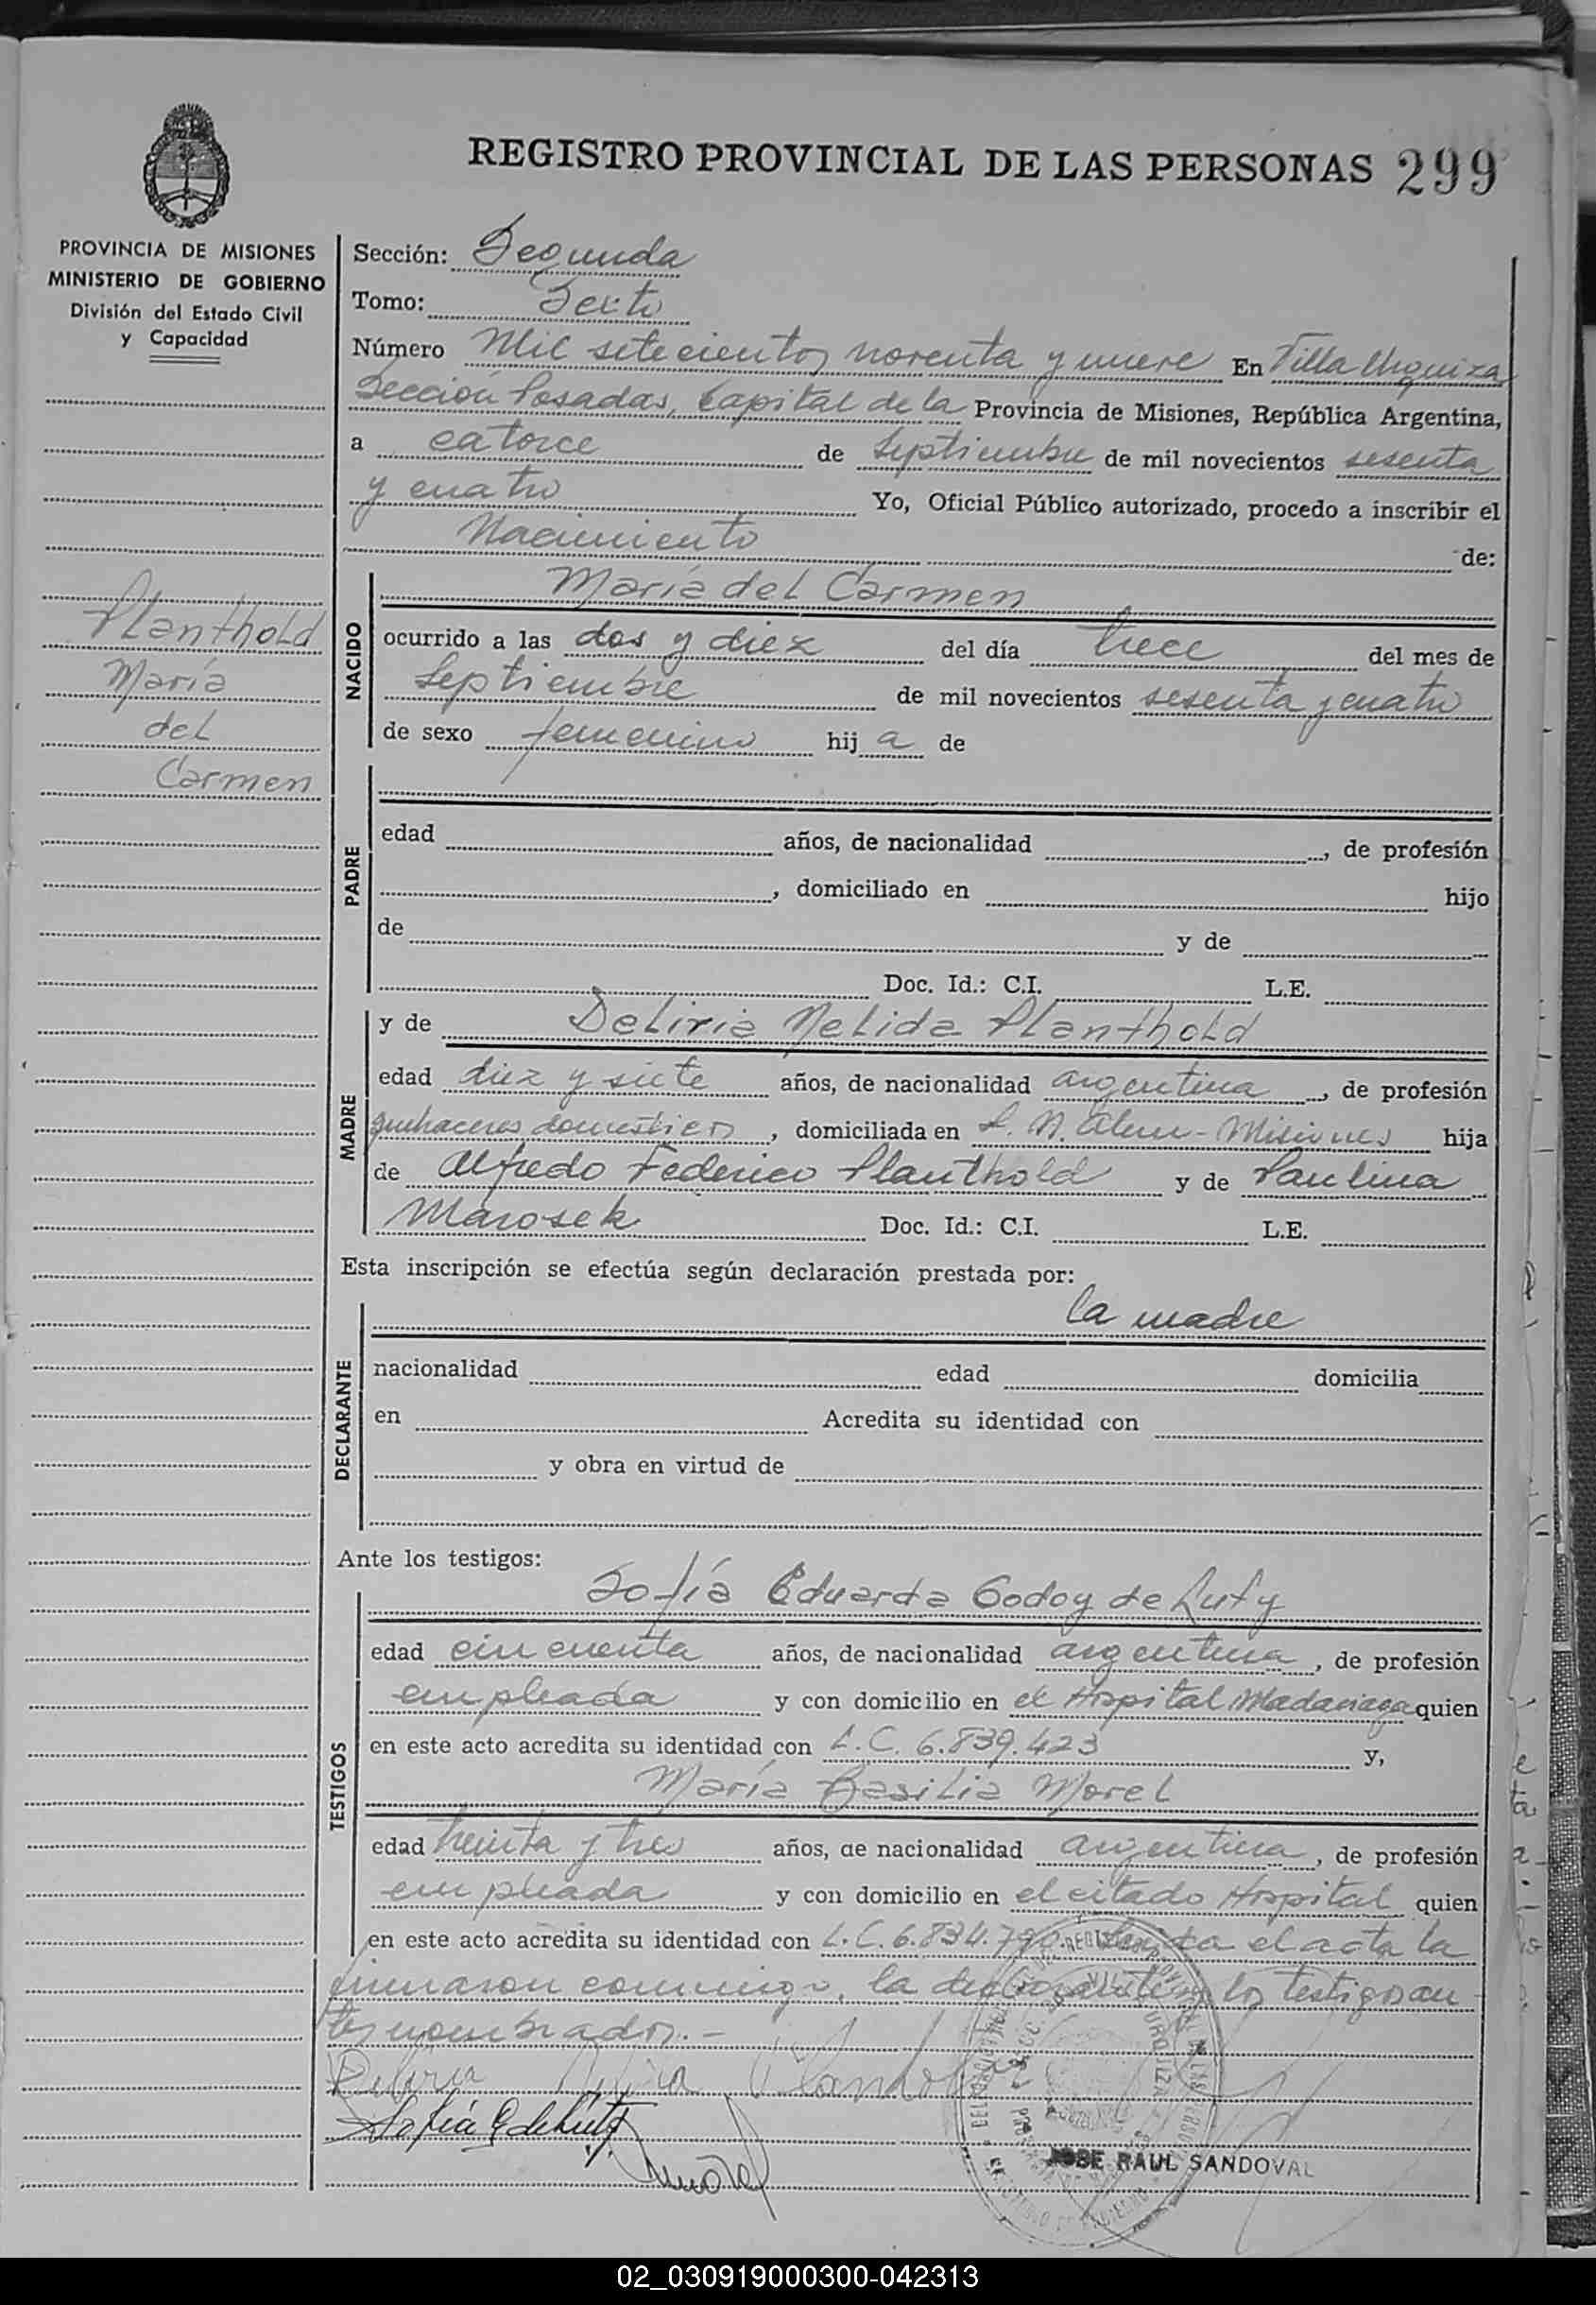 REGISTRO PROVINCIAL DE LAS PERSONAS 299
PROVINCIA DE MISIONES
MINISTERIO DE GOBIERNO
División del Estado Civil
y Capacidad
Planthold
María
del
Carmen
Sección: Segunda
Tomo: Sexto
Número Mil setecientos noventa y nueve En Villa Urquiza
Sección Posadas, Capital de la Provincia de Misiones, República Argentina,
a catorce de Septiembre de mil novecientos sesenta
y cuatro Yo, Oficial Público autorizado, procedo a inscribir el
Nacimiento de:
NACIDO
María del Carmen
ocurrido a las dos y diez del día trece del mes de
Septiembre de mil novecientos sesenta y cuatro
de sexo femenino hij a de
PADRE
edad años, de nacionalidad , de profesión
, domiciliado en hijo
de y de
Doc. Id.: C.I. L.E.
MADRE
y de Deliria Nelida Planthold
edad diez y siete años, de nacionalidad argentina , de profesión
quehaceres domésticos , domiciliada en L. N. Alem - Misiones hija
de Alfredo Federico Planthold y de Paulina
Marosek Doc. Id.: C.I. L.E.
Esta inscripción se efectúa según declaración prestada por:
la madre
DECLARANTE
nacionalidad edad domicilia
en Acredita su identidad con
y obra en virtud de
Ante los testigos:
TESTIGOS
Sofía Eduarda Godoy de Luty
edad cincuenta años, de nacionalidad argentina , de profesión
empleada y con domicilio en el Hospital Madariaga quien
en este acto acredita su identidad con L.C. 6.839.423 y,
María Basilia Morel
edad treinta y tres años, de nacionalidad argentina , de profesión
empleada y con domicilio en el citado Hospital quien
en este acto acredita su identidad con L.C. 6.834. el acta la
firmaron conmigo, la declarante y los testigos an
tes nombrados.-
Sofía G de Luty
JOSE RAUL SANDOVAL
02_030919000300-042313